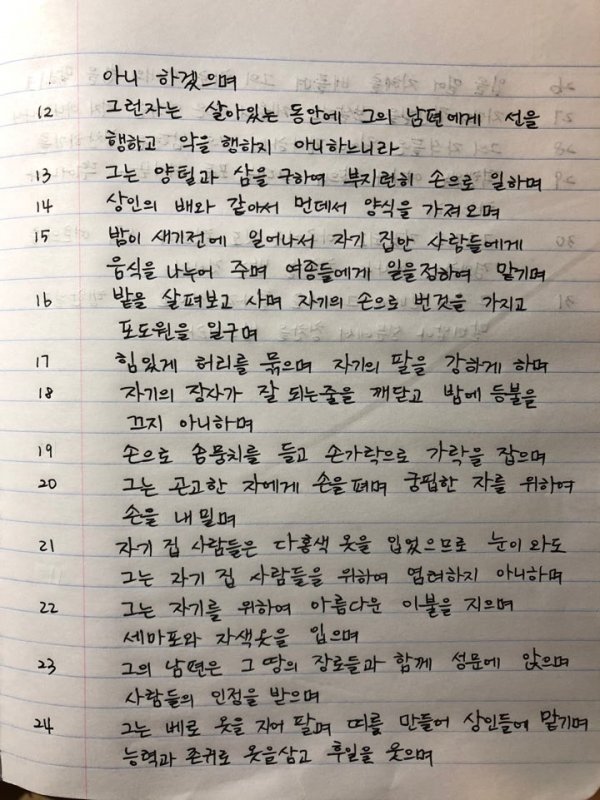 아니 하겠으며
12 그런자는 살아있는 동안에 그의 남편에게 선을
행하고 악을 행하지 아니하느니라
13 그는 양털과 삼을 구하여 부지런히 손으로 일하며
14 상인의 배와 같아서 먼데서 양식을 가져오며
15 밤이 새기전에 일어나서 자기 집안 사람들에게
음식을 나누어 주며 여종들에게 일을 정하여 맡기며
16 밭을 살펴보고 사며 자기의 손으로 번것을 가지고
포도원을 일구며
17 힘있게 허리를 묶으며 자기의 팔을 강하게 하며
18 자기의 장사가 잘 되는줄을 깨닫고 밤에 등불을
끄지 아니하며
19 손으로 솜뭉치를 들고 손가락으로 가락을 잡으며
20 그는 곤고한 자에게 손을 펴며 궁핍한 자를 위하여
손을 내밀며
21 자기 집 사람들은 다홍색 옷을 입었으므로 눈이 와도
그는 자기 집 사람들을 위하여 염려하지 아니하며
22 그는 자기를 위하여 아름다운 이불을 지으며
세마포와 자색옷을 입으며
23 그의 남편은 그 땅의 장로들과 함께 성문에 앉으며
사람들의 인정을 받으며
24 그는 베로 옷을 지어 팔며 띠를 만들어 상인들에 맡기며
능력과 존귀로 옷을삼고 후일을 웃으며